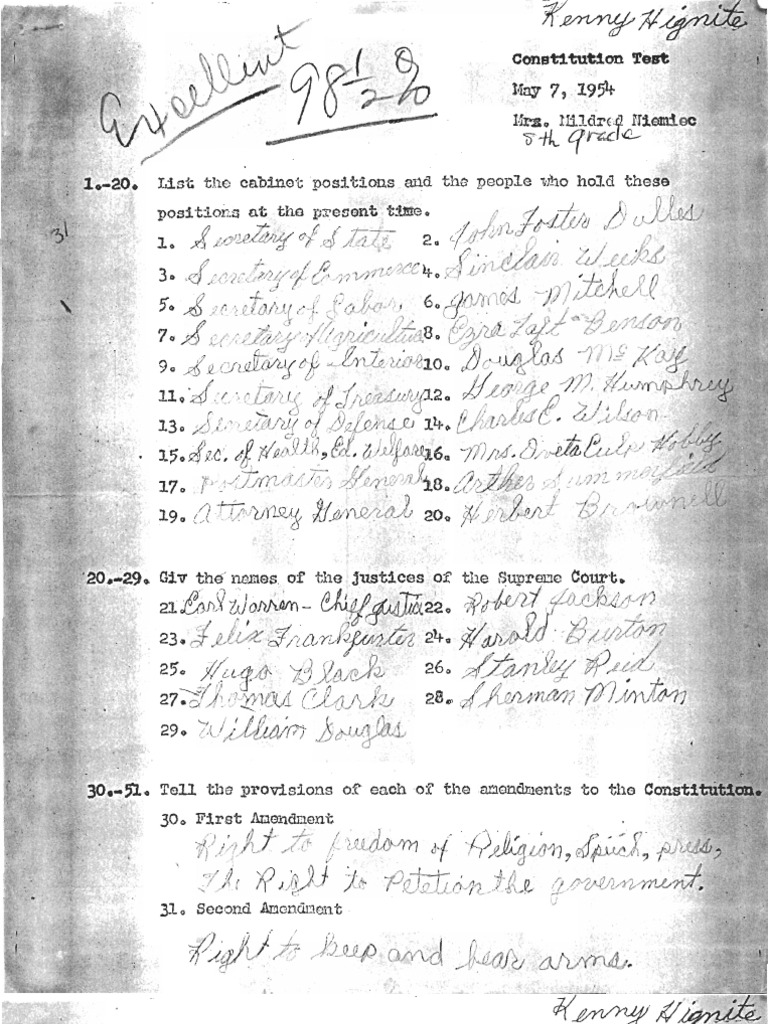 Kenny Hignite
Excellent
98 1/2 %
Constitution Test
May 7, 1954
Mrs. Mildred Niemiec
8th grade
31
1.-20. List the cabinet positions and the people who hold these
positions at the present time.
1. Secretary of State 2. John Foster Dulles
3. Secretary of Commerce 4. Sinclair Weeks
5. Secretary of Labor. 6. James Mitchell
7. Secretary of Agriculture 8. Ezra Taft Benson
9. Secretary of Interior 10. Douglas McKay
11. Secretary of Treasury 12. George M. Humphrey
13. Secretary of Defense 14. Charles E. Wilson
15. Sec. of Health, Ed. Welfare 16. Mrs. Oveta Culp Hobby
17. Postmaster General 18. Arther Summerfield
19. Attorney General 20. Herbert Brownell
20.-29. Giv the names of the justices of the Supreme Court.
21. Earl Warren - Chief justice 22. Robert Jackson
23. Felix Frankfurter 24. Harold Burton
25. Hugo Black 26. Stanley Reid
27. Thomas Clark 28. Sherman Minton
29. William Douglas
30.-51. Tell the provisions of each of the amendments to the Constitution.
30. First Amendment
Right to freedom of Religion, Speech, press,
The Right to Petetion the government.
31. Second Amendment
Right to keep and bear arms.
Kenny Hignite